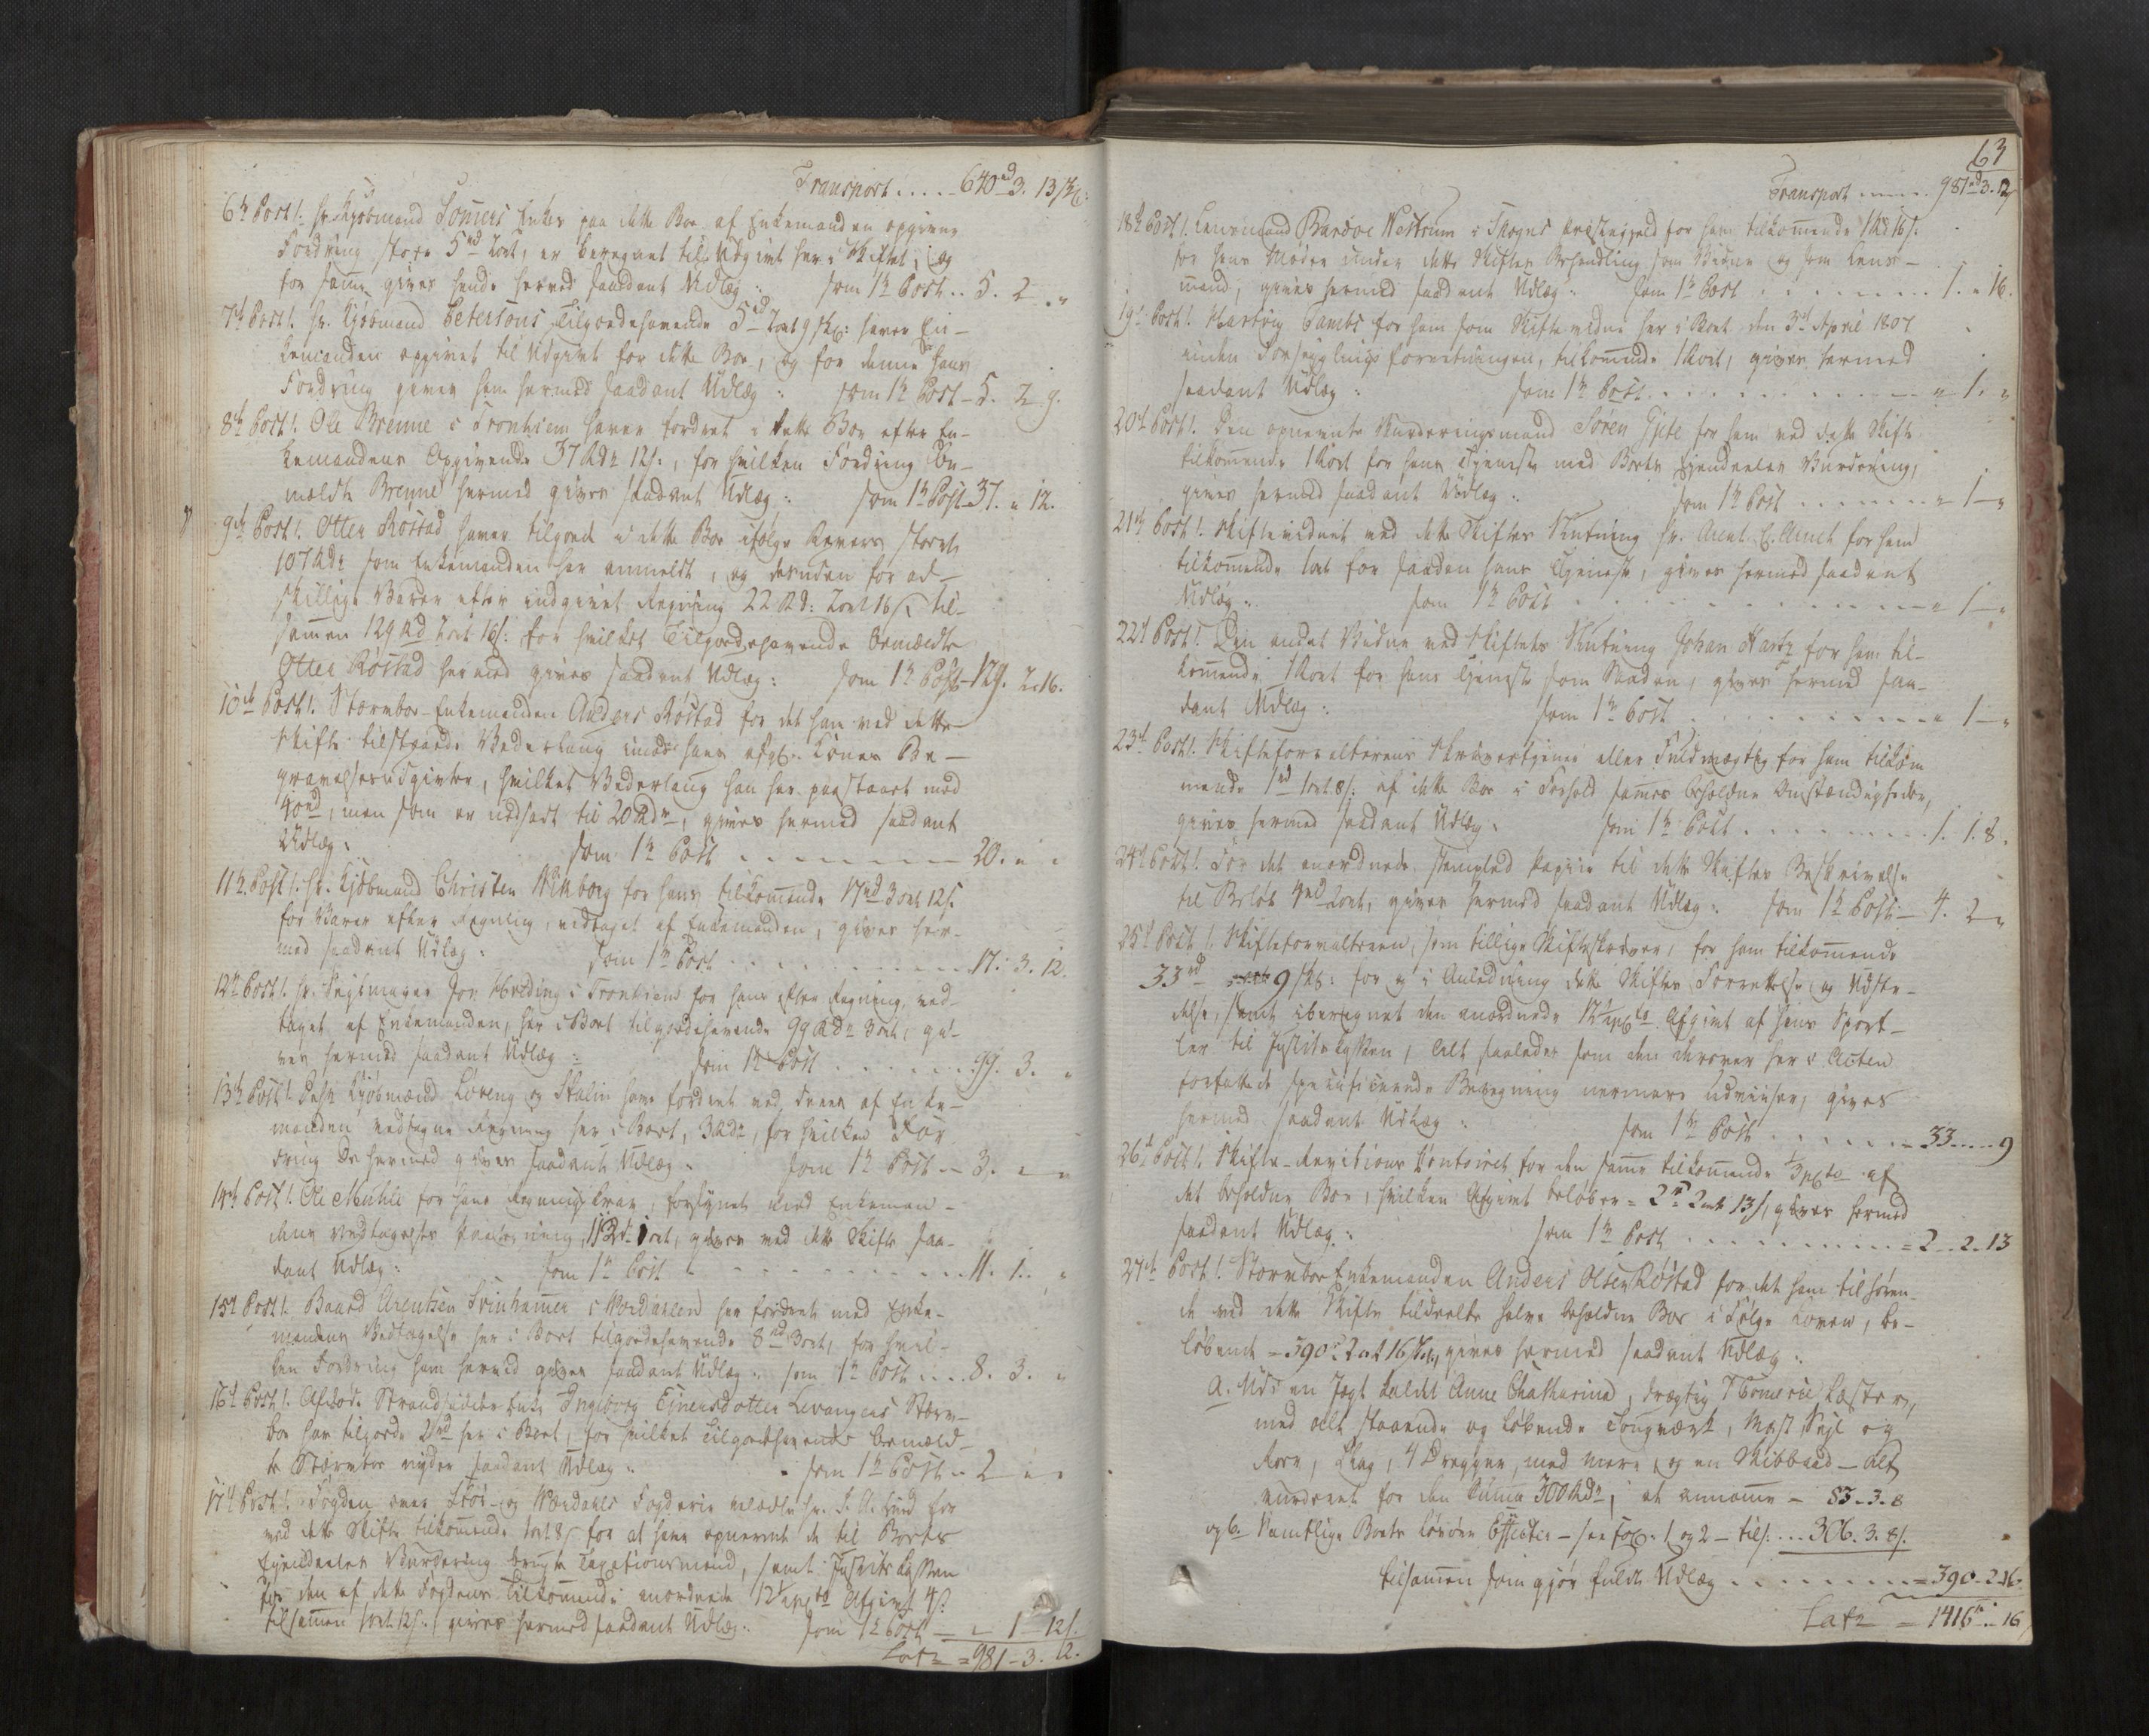 Transport ..... 640rd 3. 13 ß:
6te Post!. Hr. Kjøbmand Somers Enkes paa dette Boe af Enkemanden opgivne
Fordring stor 5rd 2ort, er beregnet til Udgivt her i Skiftet, og
for samme gives hende herved saadant Udlæg: som 1te Post .. 5. 2 . "
7de Post!. Hr. Kjøbmand Petersons Tilgodehavende 5rd 2ort 9 ß: haver En-
kemanden opgivet til Udgivt for dette Boe, og for denne hans
Fordring gives ham hermed saadant Udlæg: som 1te Post - 5. 2 9.
8de Post!. Ole Brenne i Tronhiem haver fordret i dette Boe efter En-
kemandens Opgivende 37 Rdr 12 ß:, for hvilken Fordring be-
meldte Brenne hermed gives saadant Udlæg: som 1te Post - 37. " 12.
9de Post!. Otter Røstad haver tilgode i dette Boe ifølge Revers stort
107 Rdr som Enkemanden har anmeldt, og desuden for ad-
skillige Varer efter indgivet Regning 22 Rd: 2ort 16 ß, til-
sammen 129 Rd 2ort 16 ß: for hvilket Tilgodehavende bemeldte
Otter Røstad hermed gives saadant Udlæg: som 1te Post - 129. 2. 16.
10de Post!. Stærvboe-Enkemanden Anders Røstad for det ham ved dette
Skifte tilstaaede Vederlaug imod hans afg: Kones Be-
gravelsesudgivter, hvilket Vederlaug han har paastaaet med
40rd, men som er nedsadt til 20 Rdr, gives hermed saadant
Udlæg: som 1te Post ........ 20. " "
11te Post!. Hr. Kjøbmand Christen Wikborg for hans tilkommende 17rd 3ort 12 ß.
for Varer efter Regning, vedtaget af Enkemanden, gives her-
med saadant Udlæg: som 1te Post ........ 17. 3. 12.
12te Post!. Hr. Sejlmager Jon Hveding i Tronhiem for hans efter Regning, ved-
taget af Enkemanden, her i Boet tilgodehavende 99 Rdr 3ort, gi-
ves hermed saadant Udlæg: som 1te Post ...... 99. 3. "
13de Post!. Kjøbmænd Loreng og Stalin have fordret ved deres af Enke-
manden vedtagne Regning her i Boet, 3 Rdr, for hvilken For-
dring De hermed gives saadant Udlæg: som 1te Post -- 3. " "
14de Post!. Ole Muhle for hans Regnings Krav, forsynet med Enkeman-
dens Vedtagelses Paategning, 11 Rd 1ort, gives ved dette Skifte saa-
dant Udlæg: som 1te Post ........ 11. 1. "
15de Post!. Baard Arentsen Svinhamer i Værdahlen har fordret med Enke-
mandens Vedtagelse her i Boet tilgodehavende 8rd 3ort, for hvil-
ken Fordring ham hermed gives saadant Udlæg: som 1te Post .... 8. 3. "
16de Post!. Afdøde Strandsidder Enke Ingeborg Ejnersdotter Levangers Stærv-
boe har tilgode 2rd her i Boet, for hvilket Tilgodehavende bemeld-
te Stærvboe nyder saadant Udlæg: som 1te Post .. 2 " "
17de Post!. Fogden over Stør- og Værdahls Fogderie Hr. for
ved dette Skifte tilkommende 1ort 8 ß for at have opnævnt de til Boets
Ejendeeles Vurdering brugte Taxationsmænd, samt Justits Cassen
for den af dette Fogdens Tilkommende anordnede 12½ pCto Afgivt 4 ß.
tilsammen 1ort 12 ß:, gives hermed saadant Udlæg: som 1te Post -- " 1 - 12 ß.
Latr = 981 - 3. 12.
63
Transport ........ 981rd 3. 12
18de Post!. Lensmand Bardoe Nestrum i Skogns Præstegjeld for ham tilkommende 1 Rd 16 ß.
for hans Møder under dette Skiftes Behandling som Vidne og som Lens-
mand, gives hermed saadant Udlæg: som 1te Post ........ 1. " 16.
19de Post!. Hartvig Pambs for ham som Skiftevidne her i Boet den 3de April 1807.
under Forseiglings forretningen, tilkommende 1 Rort, gives hermed
saadant Udlæg: som 1te Post ........ " 1. "
20de Post!. Den opnævnte Vurderingsmand Søren Gjite for ham ved dette Skifte
tilkommende 1 Rort for hans Tjeneste med Boets Ejendeeles Vurdering,
gives hermed saadant Udlæg: som 1te Post ...... " 1 - "
21de Post!. Skiftevidnet ved dette Skiftes Slutning Hr. Arent E. Arnet for ham
tilkommende 1ort for saadan hans Tjeneste, gives hermed saadant
Udlæg: som 1te Post ........ " 1 - "
22de Post!. Den andet Vidne ved Skiftets Slutning Johan Hartz for ham til-
kommende 1 Rort for hans Tjeneste som Saadan, gives hermed saa-
dant Udlæg: som 1te Post ........ " 1 - "
23de Post!. Skifteforvalterens Skrivertjener eller Fuldmægtig for ham tilkom-
mende 1rd 1ort 8 ß: af dette Boe i Forhold sammes beholdne Omstændigheder,
gives hermed saadant Udlæg: som 1te Post ........ 1. 1. 8.
24de Post!. For det anordnede stemplede Papiir til dette Skiftes Beskrivelse
til Beløb 4rd 2ort, gives hermed saadant Udlæg: som 1te Post - 4. 2 "
25de Post!. Skifteforvalteren, som tillige Skifteskriver, for ham tilkommende
33rd 9 ß: for og i Anledning dette Skiftes Forrettelse og Udste-
delse, samt iberegnet den anordnede 12½ pCto Afgivt af hans Sport-
ler til Justitz Cassen, alt saaledes som den derover her i Acten
forfattede specificerende Beregning nermere udviiser, gives
hermed saadant Udlæg: som 1te Post ........ 33 .... 9
26de Post!. Skifte-Revisions Contoiret for den samme tilkommende ⅓ pCto af
det beholdne Boe, hvilken Afgivt beløber = 2rd 2ort 13 ß, gives hermed
saadant Udlæg: som 1te Post ........ = 2 - 2. 13
27de Post!. Stærvboe Enkemanden Anders Olsen Røstad for det ham tilhøren-
de ved dette Skifte tildeelte halve beholdne Boe i Følge Loven, be-
løbende = 390rd 2ort 16 ß, gives hermed saadant Udlæg:
a. Udi en Jagt kaldet Anne Chatharina, drægtig 7 Læster,
med alt staaende og løbende Tougværk, Mast, Sejl og
Roer, 4 Dregger, med mere, og en Skibbaad - alt
vurderet for den Summa 300 Rdr, at annamme - 83 - 3. 8
og b. Samtlige Boets løsøre Effecter - see Fol: 1 og 2 - til ... 306. 3. 8 ß.
tilsammen som gjør fuldt Udlæg ........ = 390 - 2. 16.
Latr = 1416rd .. 16